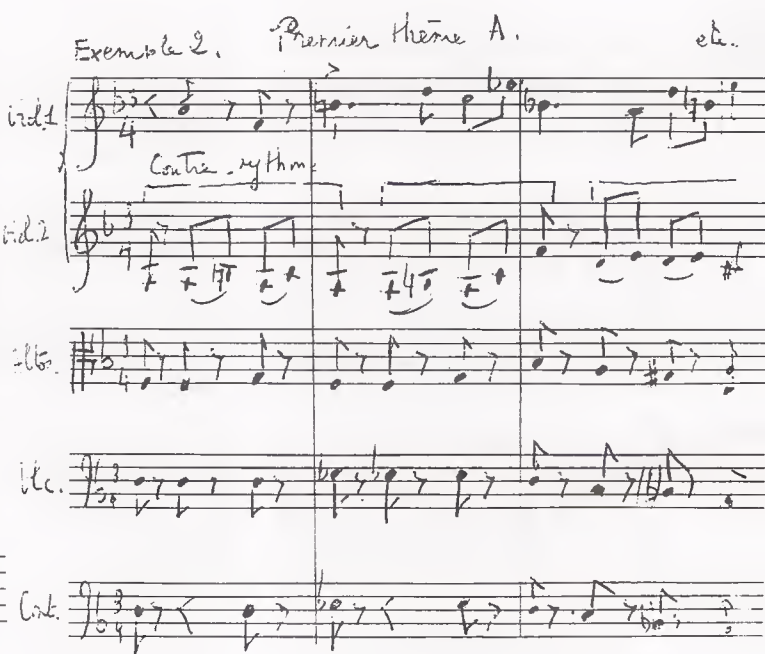 Exemple 2. Premier thème A. etc.
Viol. 1
3
4
Contre-rythme
Viol. 2
3
4
Altos
3
4
Vlc.
3
4
Cont.
3
4